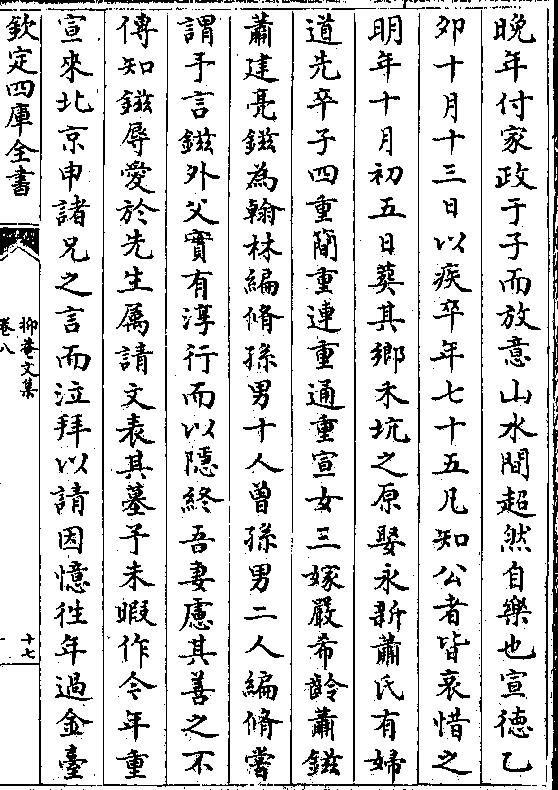 晚年付家政于子而放意山水間超然自樂也宣德乙
夘十月十三日以疾卒年七十五凡知公者皆哀惜之
明年十月初五日葬其鄉禾坑之原娶永新蕭氏有婦
道先卒子四重簡重連重通重宣女三嫁嚴希齡蕭鎡
蕭建亮鎡為翰林編脩孫男十人曾孫男二人編脩嘗
謂予言鎡外父實有淳行而以隱終吾妻慮其善之不
傳知鎡辱愛於先生屬請文表其墓予未暇作今年重
宣來北京申諸兄之言而泣拜以請因憶徃年過金臺
欽定四庫全書
抑菴文集
卷八
十七